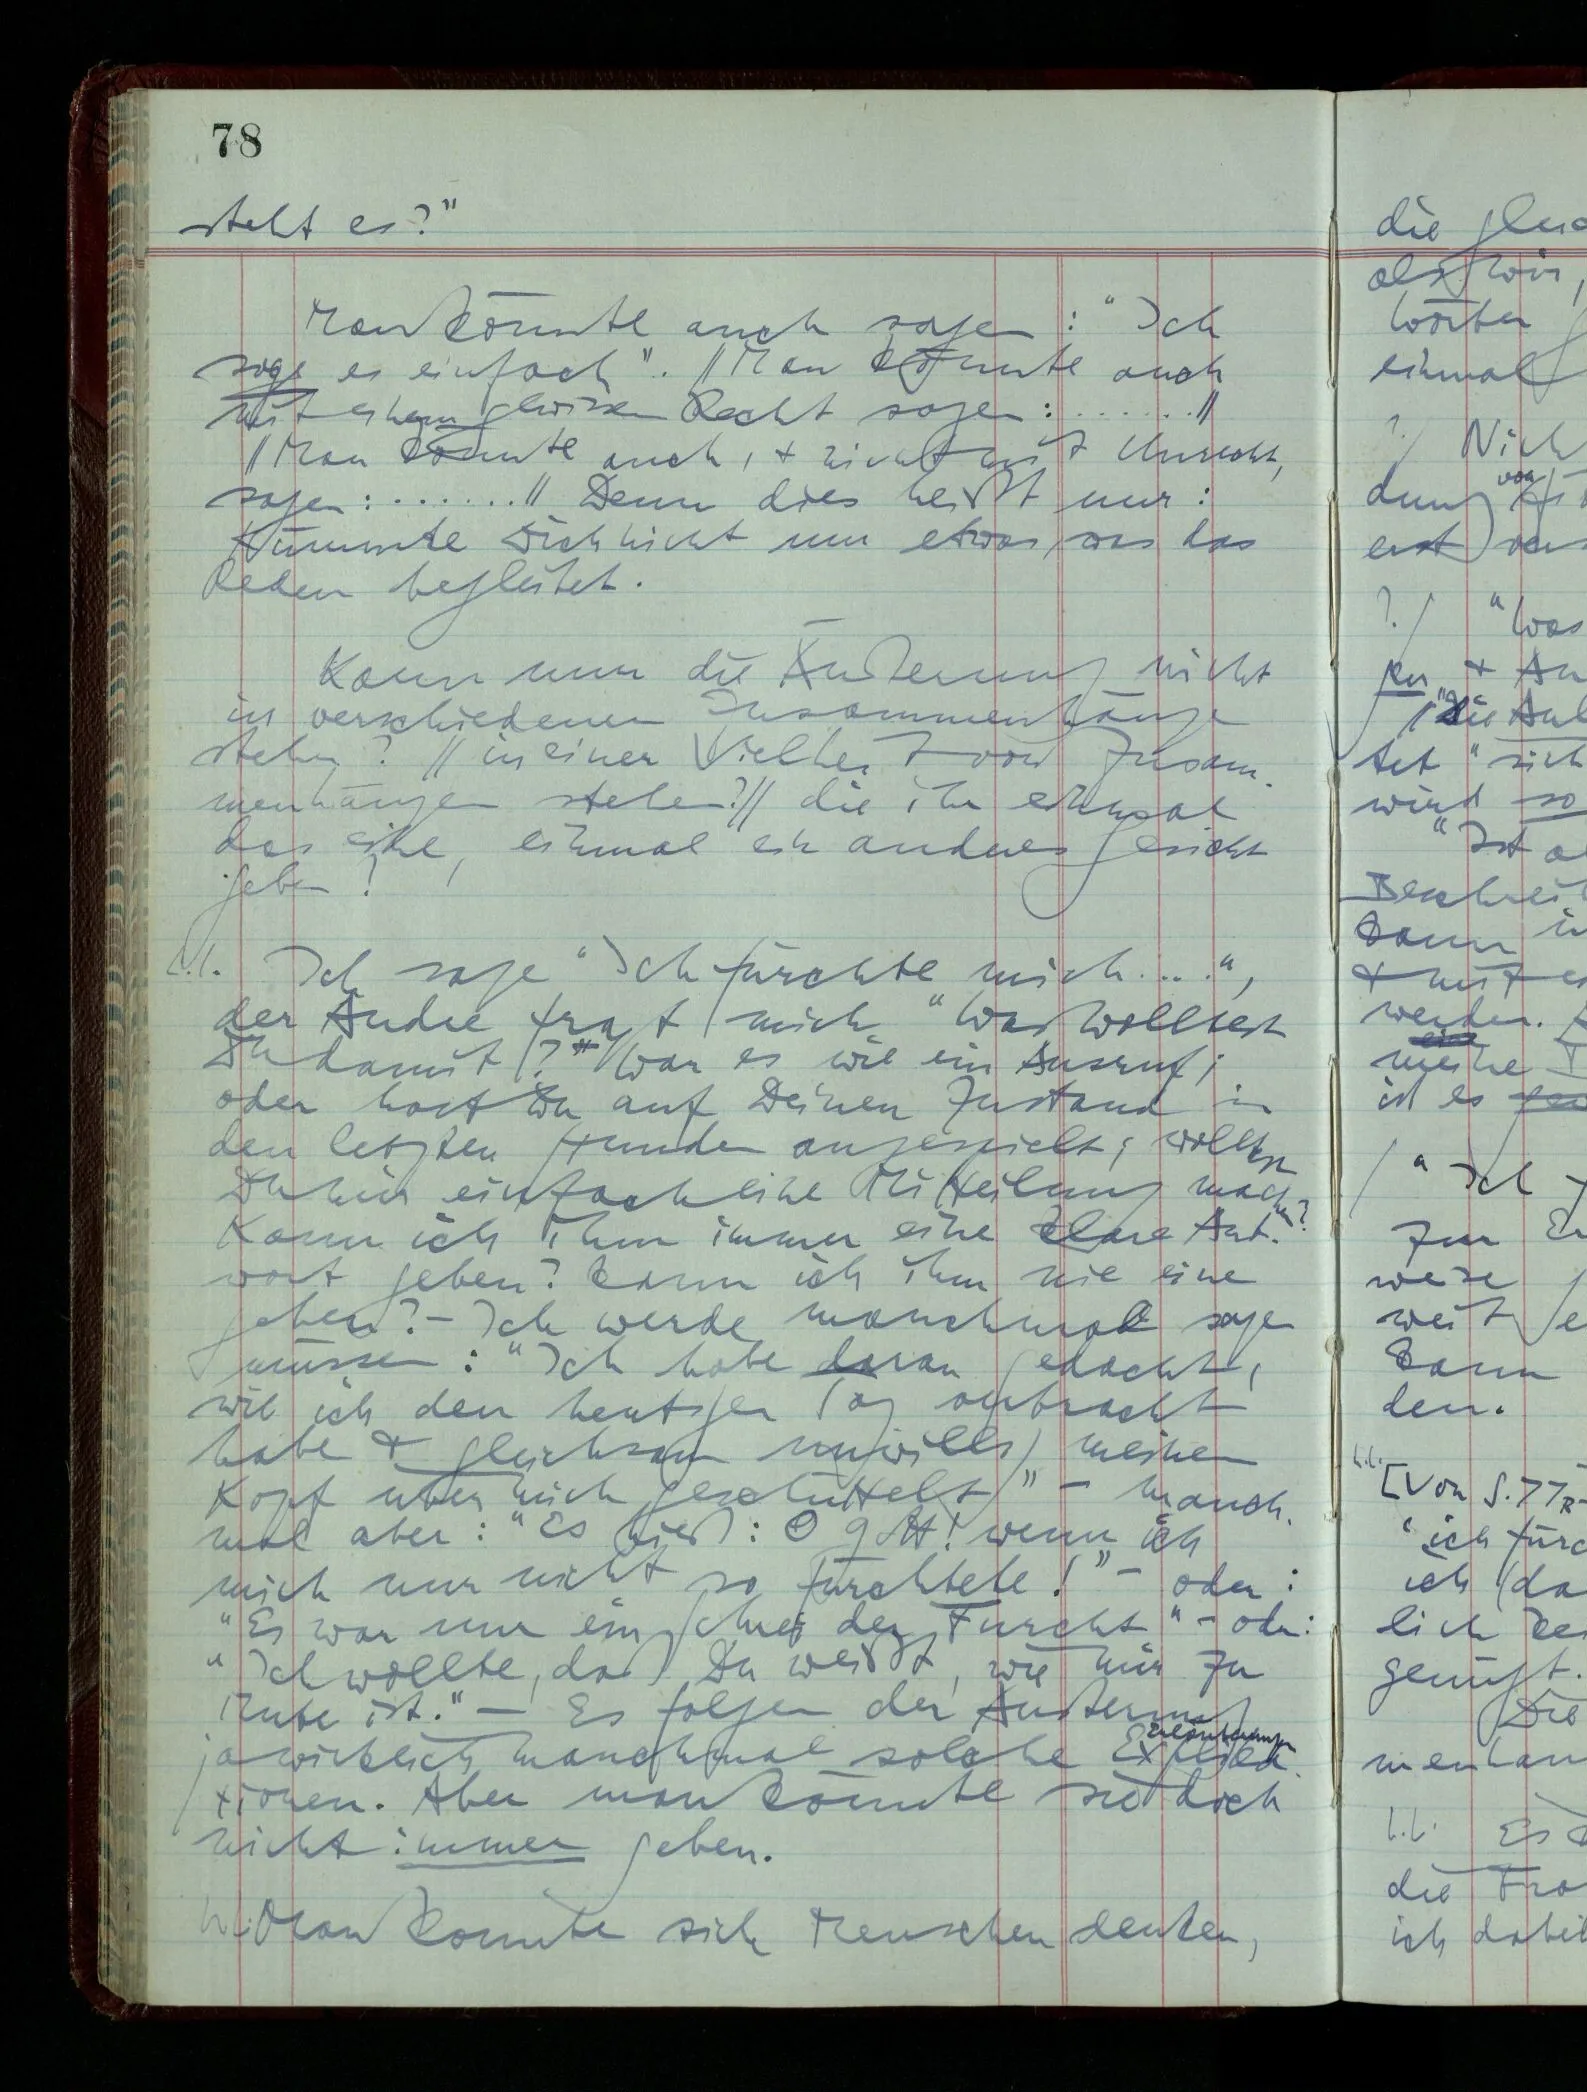 78
steht es?"
Man könnte auch sagen: "Ich
sage es einfach". // Man könnte auch
mit einem gewissen Recht sagen: ....... //
// Man könnte auch, + nicht mit Unrecht,
sagen: ....... // Denn dies heißt nur:
Kümmere Dich nicht um etwas was das
Reden begleitet.
Kann nun die Äußerung nicht
in verschiedenen Zusammenhänge
stehn? // in einer Vielheit von Zusam-
menhängen stehen? // die ihr einmal
das eine, einmal ein anderes Gesicht
geben?
Ich sage "Ich fürchte mich....",
der Andre fragt mich "Was wolltest
Du damit? War es wie ein Ausruf;
oder hast Du auf Deinen Zustand in
den letzten Stunden angespielt; wolltest
Du mir einfach eine Mitteilung machen?"
Kann ich ihm immer eine klare Ant-
wort geben? Kann ich ihm nie eine
geben? – Ich werde manchmal sagen
müssen: "Ich habe daran gedacht,
wie ich den heutigen Tag verbracht
habe + gleichsam unwillig meinen
Kopf über mich geschüttelt" – manch-
mal aber: "Es hieß: O Gott! wenn ich
mich nur nicht so fürchtete!" – oder:
"Es war nur ein Schrei der Furcht" – oder:
"Ich wollte, daß Du weißt, wie mir zu
Mute ist." – Es folgen der Äußerung
ja wirklich manchmal solche Erläuterungen Explika-
tionen. Aber man könnte sie doch
nicht immer geben.
Man könnte sich Menschen denken,
die
als wir,
Wörter
einmal
? Nich
dung von
erst
? "Was
"die
tet "sich
wird so
"Ist
Beschreib
kann
+ mit
werden.
meine
ist es
/ "Ich
Zur
weise
weit
kann
den.
[Von S. 77
"ich fürc
ich (da
lich
genügt.
Die
menhan
Es
die Fra
ich dabei